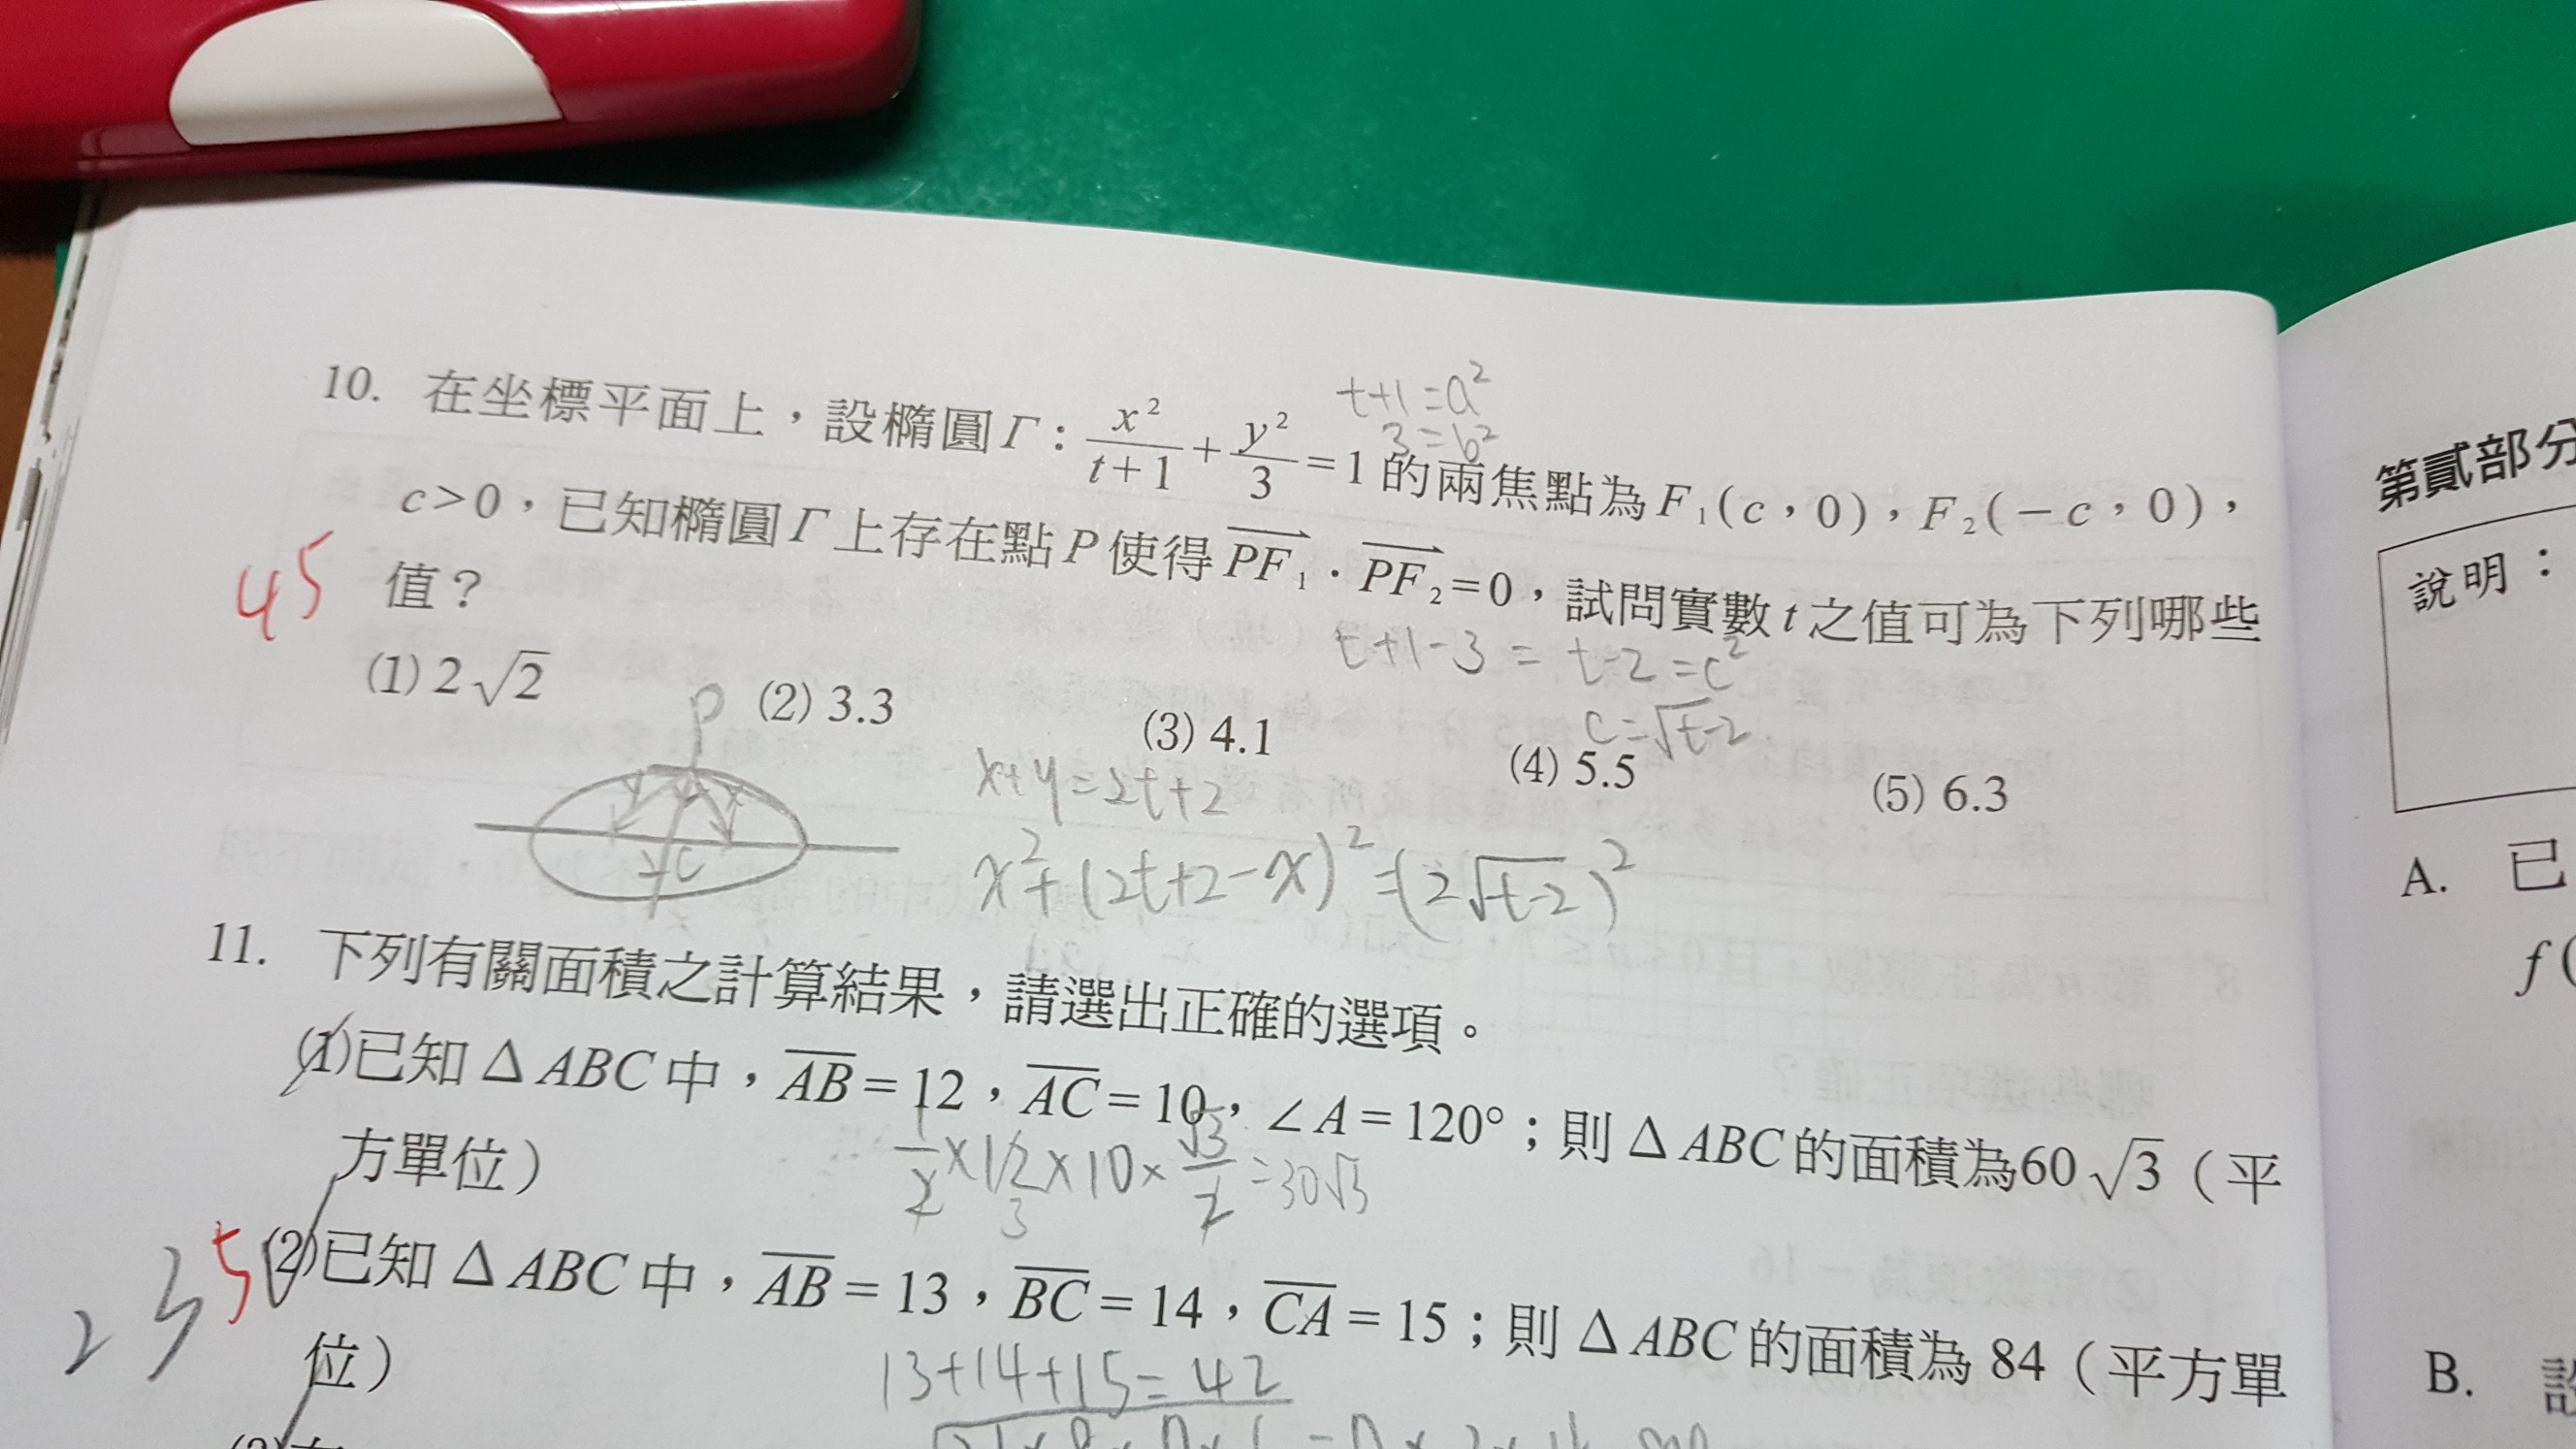 10. 在坐標平面上，設橢圓Γ：x²/(t+1)+y²/3=1的兩焦點為F₁(c，0)，F₂(－c，0)，
t+1=a²
3=b²
c>0，已知橢圓Γ上存在點P使得PF₁·PF₂=0，試問實數t之值可為下列哪些
值？
45
t+1-3=t-2=c²
c=√t-2
(1) 2√2 (2) 3.3 (3) 4.1 (4) 5.5 (5) 6.3
P
x+y=2t+2
x²+(2t+2-x)²=(2√t-2)²
11. 下列有關面積之計算結果，請選出正確的選項。
(1)已知△ABC中，AB=12，AC=10，∠A=120°；則△ABC的面積為60√3（平
方單位）
1/2×12×10×√3/2=30√3
2 3 5
(2)已知△ABC中，AB=13，BC=14，CA=15；則△ABC的面積為84（平方單
位）
13+14+15=42
第貳部分
說明：
A. 已
f(
B. 設